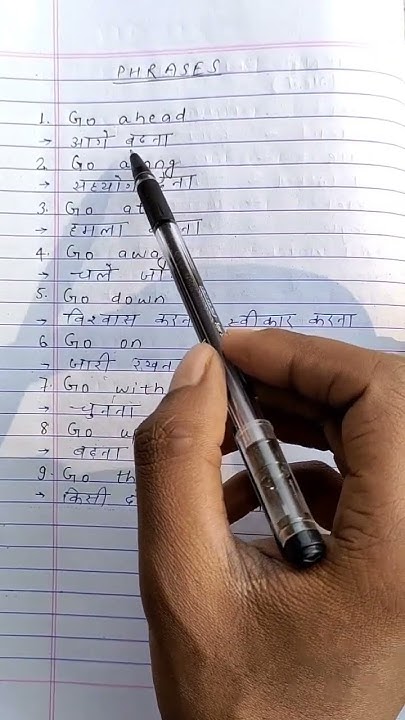 PHRASES
1. Go ahead
→ आगे बढना
2. Go along
→ सहयोग देना
3. Go at
→ हमला
4. Go away
→ चले जा
5. Go down
→ विश्वास करना, स्वीकार करना
6 Go on
→ जारी रखना
7. Go with
→ चुनना
8 Go
→ बढना
9. Go
→ किसी